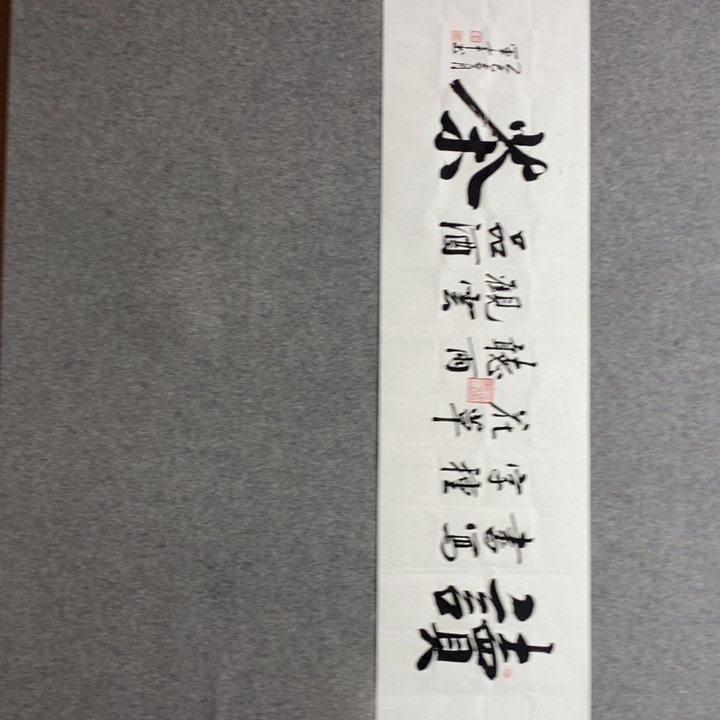 讀
書寫
字種
花草
聽雨
觀雲
品酒
茶
乙巳春月